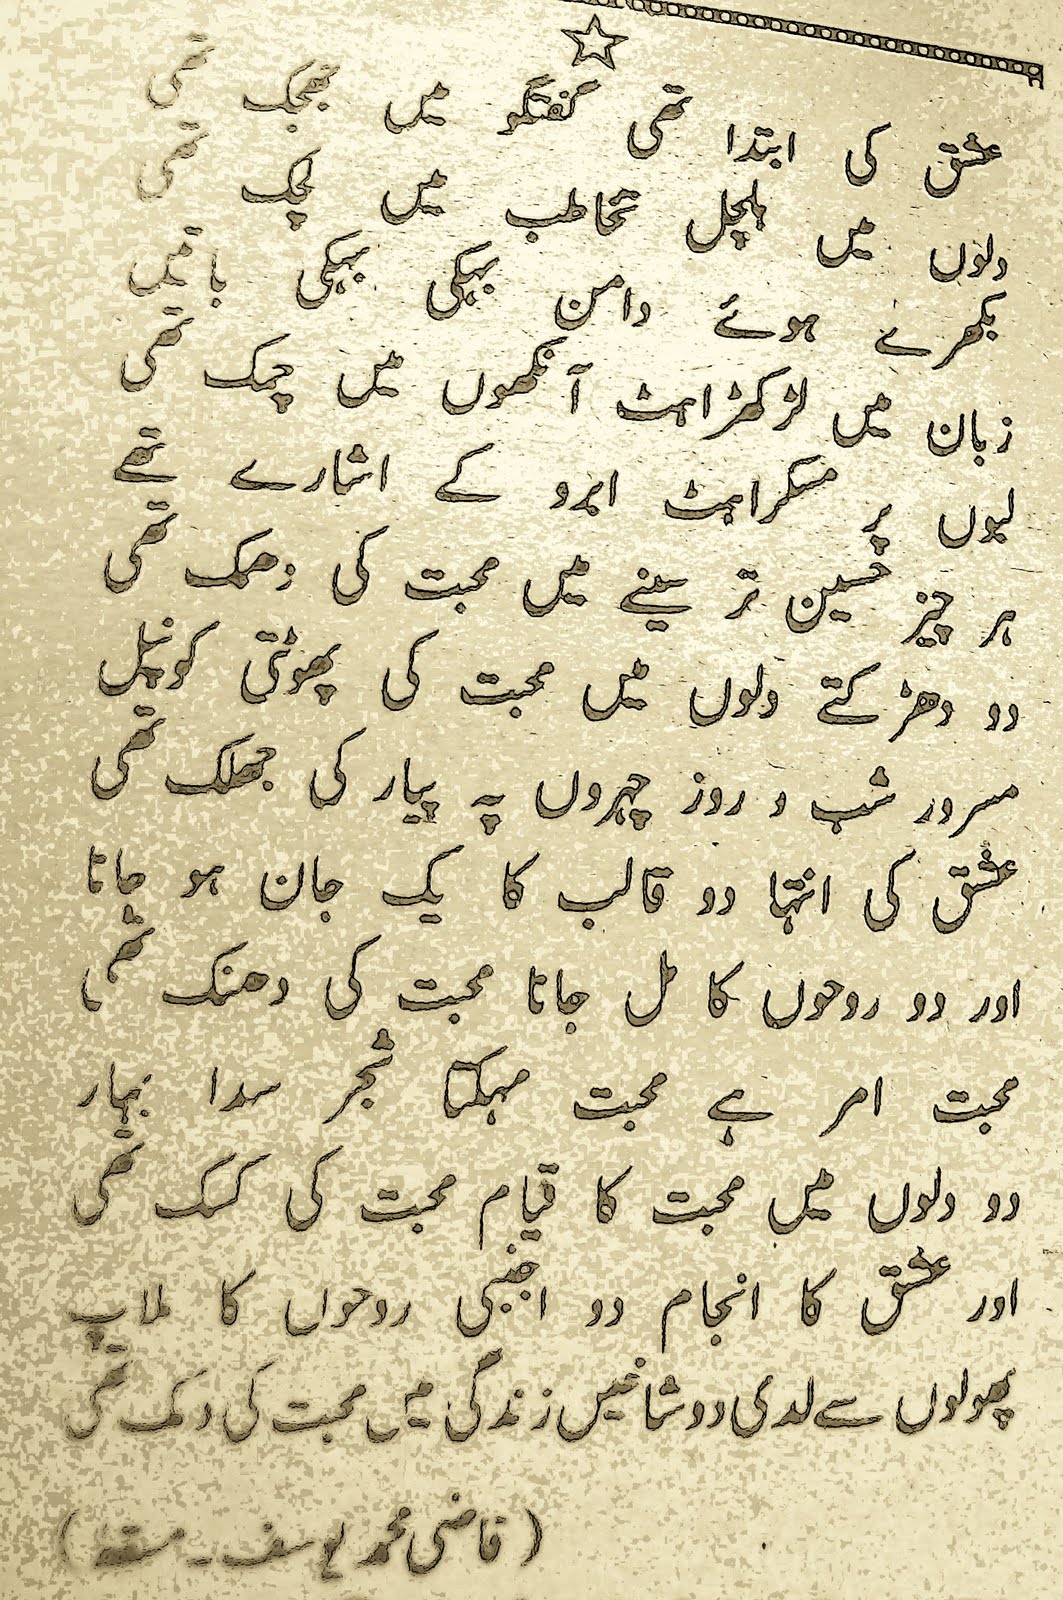 عشق کی ابتدا تھی گفتگو میں جھجک تھی
دلوں میں ہلچل تخاطب میں لچک تھی
بکھرے ہوئے دامن بہکی بہکی باتیں
زبان میں لڑکھڑاہٹ آنکھوں میں چمک تھی
لبوں پر مسکراہٹ ابرو کے اشارے تھے
ہر چیز حسین تر سینے میں محبت کی دھمک تھی
دو دھڑکتے دلوں میں محبت کی پھوٹتی کونپل
مسرور شب و روز چہروں پہ پیار کی جھلک تھی
عشق کی انتہا دو قالب کا یک جان ہو جانا
اور دو روحوں کا مل جانا محبت کی دھنک تھی
محبت امر ہے محبت مہکتا شجر سدا بہار
دو دلوں میں محبت کا قیام محبت کی کسک تھی
اور عشق کا انجام دو اجنبی روحوں کا ملاپ
پھولوں سے لدی دو شاخیں زندگی میں محبت کی دمک تھی
(قاضی محمد یوسف۔ مسقط)